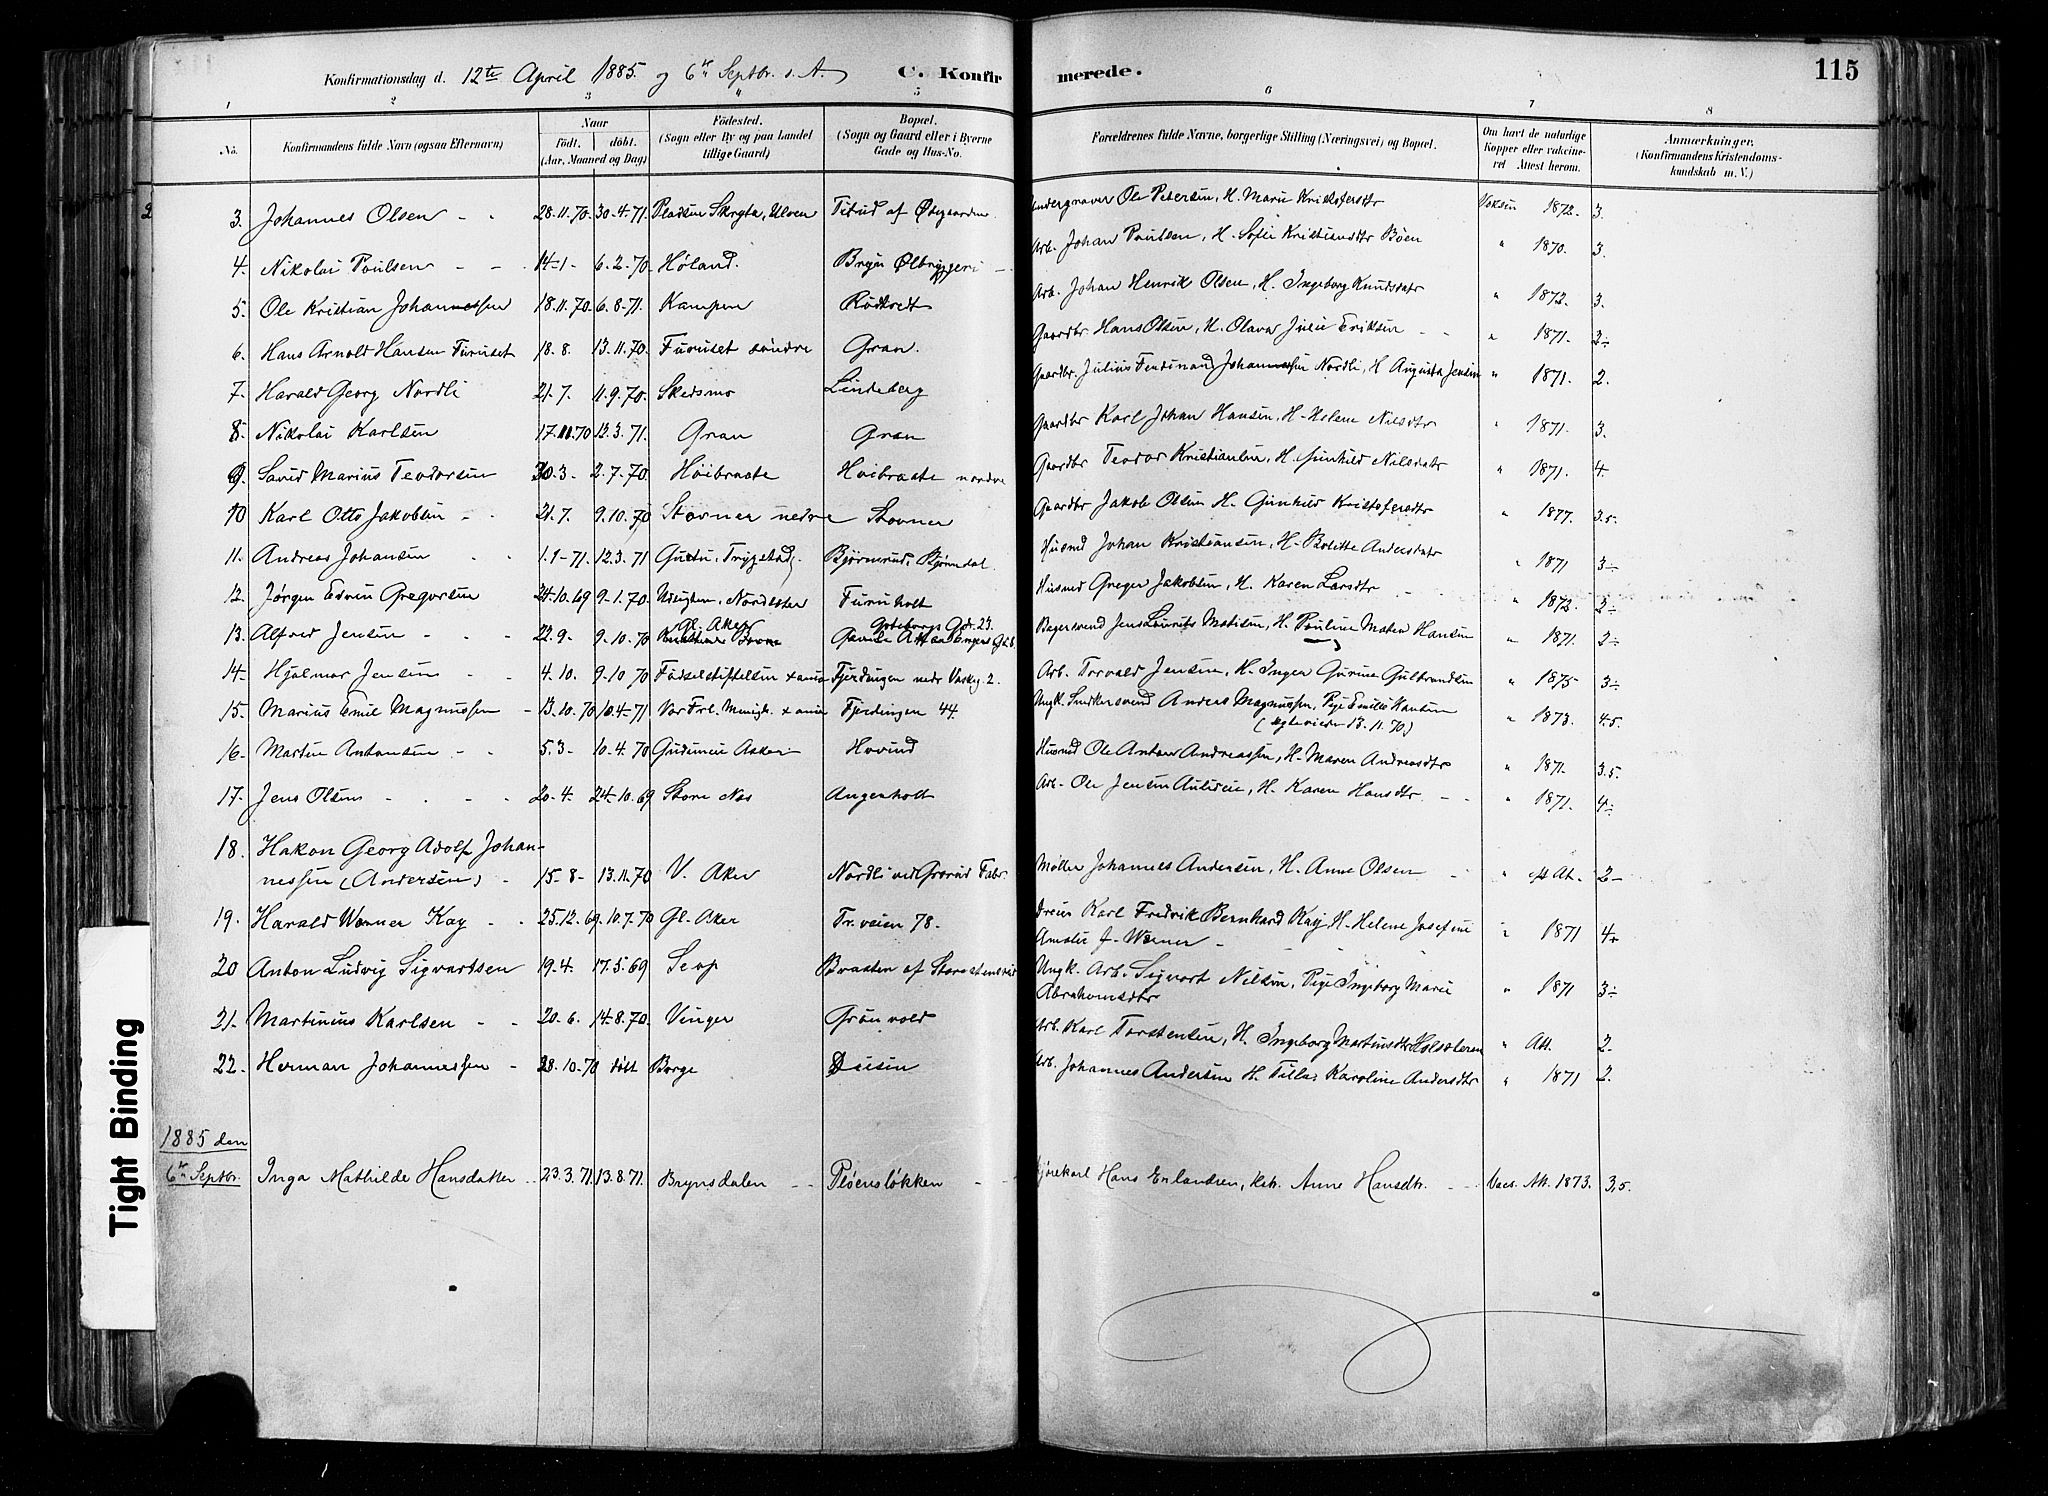 Konfirmationsdag d. 12te April 1885. og 6te Septbr. s. A. C. Konfirmerede. 115
1 2 3 4 5 6 7 8
No. Konfirmandens fulde Navn (ogsaa Efternavn) Naar født. døbt. (Aar, Maaned og Dag) Fødested. (Sogn eller By og paa Landet tillige Gaard) Bopæl. (Sogn og Gaard eller i Byerne Gade og Hus-No. Forældrenes fulde Navne, borgerlige Stilling (Næringsvei) og Bopæl. Om havt de naturlige Kopper eller vaccineret Attest herom. Anmærkninger. (Konfirmandens Kristendomskundskab m. V.)
3. Johannes Olsen 28.11.70 30.4.71. Pladsen Ulven af Østgaarden Ole Petersen, H. Marie 1872. 3.
4. Nikolai Poulsen 14-1- 6.2.70 Høland. Bryn Ølbryggeri Arb. Johan Poulsen, H. Sofie Kristiansdtr Bøen " 1870. 3.
5. Ole Kristian Johannessen 18.11.70 6.8.71. Kampen Arb. Johan Henrik Olsen, H. Ingeborg Knudsdatr " 1872. 3.
6. Hans Arnold Hansen Furuset 18.8. 13.11.70. Furuset søndre Gran. Gaardbr. Hans Olsen, H. Olava Julie Eriksen " 1871. 2÷
7. Harald Georg Nordli 21.7. 11.9.70. Skedsmo Lindeberg Gaardbr. Julius Ferdinand Johannessen Nordli, H Augusta Jensen " 1871. 2.
8. Nikolai Karlsen 17.11.70 12.3.71. Gran Gran Gaardbr Karl Johan Hansen, H. Helene Nilsdtr " 1871. 3.
9. Marius Teodorsen 30.3- 2.7.70. Høibraate Høibraate nordre Gaardbr Teodor Kristiansen, H. Gunhild Nilsdatr " 1871. 4
10 Karl Otto Jakobsen 21.7. 9.10.70 Stovner nedre Stovner Gaardbr Jakob Olsen H. Kristofersdtr " 1877. 3.5.
11. Andreas Johansen 1.1-71. 12.3.71 Trygstad Bjørnsrud, Bjørndal. Husmd Johan Kristiansen, H. Andersdatr " 1871 3÷
12. Jørgen Edvin Gregersen 24.10.69 9-1.70. Furuholt Husmd Greger Jakobsen, H. Karen Larsdtr " 1872. 2÷
13. Alfred Jensen 22.9- 9.10.70 Gl. Aker Gøteborgs Gd. 23. Jens Laurits Matisen, H. Pauline Hansen " 1871. 2÷
14- Hjalmar Jensen 4.10. 9-10 70 Fødselstiftelsen Fjerdingen 2. Arb. Torvald Jensen, H. Inger Gurine Gulbrandsen " 1875 3÷
15. Marius Emil Magnussen 13.10.70 10.4-71 Vor Frl. Menigh. Fjerdingen 44. Ungk. Andreas Magnussen, Pige Emilie Hansen
(ægteviede 13.11.70.) " 1873. 4.5.
16- Martin Antonsen 5.3- 10.4.70 Asker Hovind Husmd Ole Anton Andreassen, H. Maren Andreasdtr " 1871. 3.5.
17. Jens Olsen 20-4. 24.10.69 Store Næs Angerholt Arb. Ole Jensen, H. Karen Hansdtr. " 1871. 4÷
18. Hakon Georg Adolf Johan-
nessen (Andersen) 15-8- 13.11.70 V. Aker Nordli ved Grorud Fabr. Møller Johannes Andersen, H. Anne Olsen " At. 2-
19. Harald Werner Kay 25.12.69. 10.7.70 Gl. Aker Tr. veien 78. Karl Fredrik Bernhard Kay, H. Helene Josefine
Amalie f. Werner " 1871 4+
20 Anton Ludvig Sigvartsen 19-4. 17.5.69 Braaten af Ungk. Arb. Sigvart Nilsen, Pige Ingeborg Marie
Abrahamsdtr " 1871 3÷
21- Martinius Karlsen 20.6. 14-8.70. Vinger Grønvold Arb. Karl Torstensen, H. Ingeborg Martinsdtr " Att. 2-
22. Herman Johannessen 28.10.70 døbt Borge Arb. Johannes Andersen H. Karoline Andersdtr " 1871 2.
1885 den
6te Septbr. Inga Mathilde Hansdatter 23.3.71 13.8.71. Brynsdalen Pløensløkken Kjørekarl Hans Erlandsen, Anne Hansdtr. Vacc. Att. 1873. 3,5.
Tight Binding